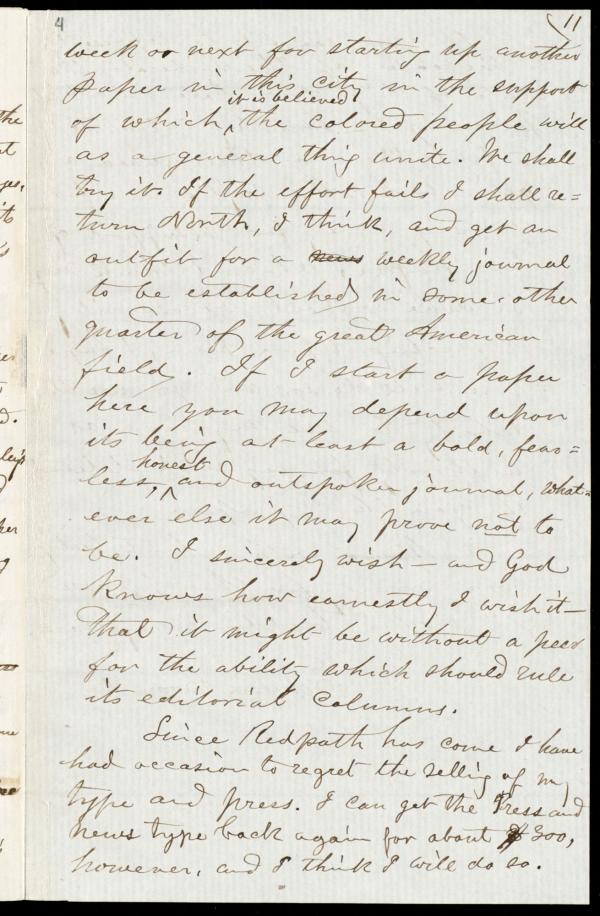 4
11
week or next for starting up another
paper in this city in the support
it is believed
of which, the colored people will
as a general thing unite. We shall
try it. If the effort fails I shall re=
turn North, I think, and get an
outfit for a news weekly journal
to be established in some other
quarter of the great American
field. If I start a paper
here you may depend upon
its being at least a bold, fear=
honest
less, and outspoken journal, what=
ever else it may prove not to
be. I sincerely wish – and God
knows how earnestly I wish it –
that it might be without a peer
for the ability which should rule
its editorial columns.
Since Redpath has come I have
had occasion to regret the selling of my
type and press. I can get the Press and
news type back again for about $300,
however, and I think I will do so.